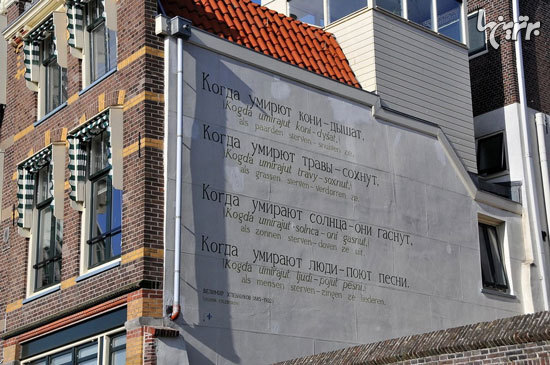 Когда умирют кони–дышат,
(Kogda umirajut koni–dyšat,)
als paarden sterven–snuiven ze,
Когда умирют травы–сохнут,
(Kogda umirajut travy–soxnut,)
als grassen sterven–verdorren ze,
Когда умирают солнца–они гаснут,
(Kogda umirajut solnca–oni gasnut,)
als zonnen sterven–doven ze uit,
Когда умирают люди–поют песни.
(Kogda umirajut ljudi–pojut pesni.)
als mensen sterven–zingen ze liederen.
ВЕЛИМИР ХЛЕБНИКОВ (1885-1922)